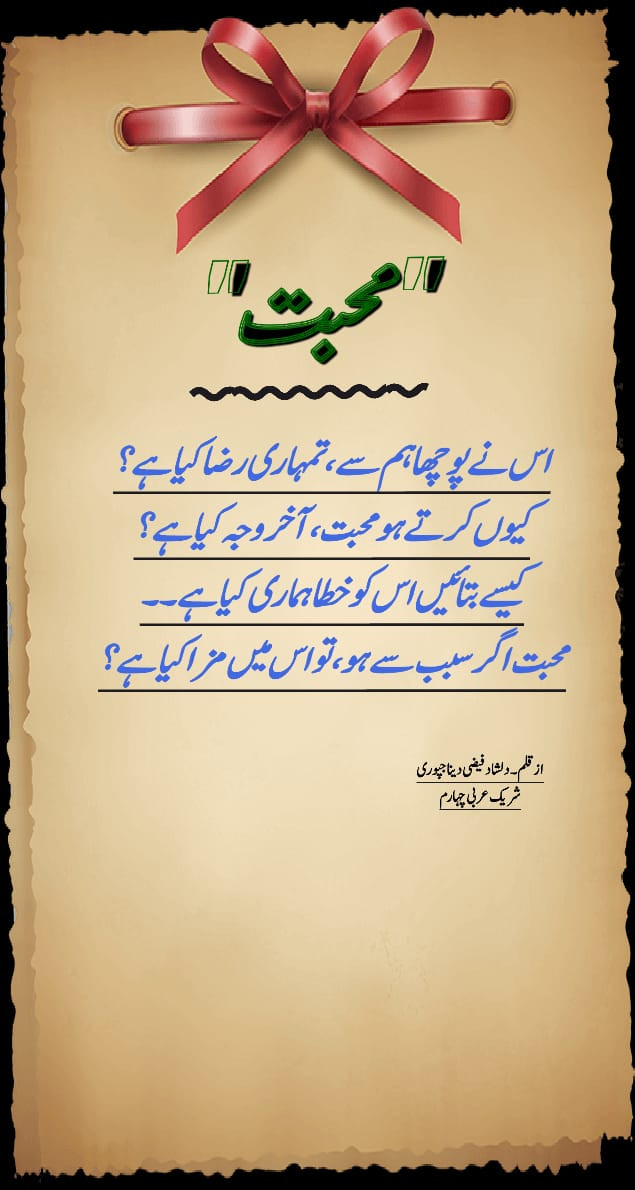 "محبت"
اس نے پوچھا ہم سے، تمہاری رضا کیا ہے؟
کیوں کرتے ہو محبت، آخر وجہ کیا ہے؟
کیسے بتائیں اس کو خطا ہماری کیا ہے۔۔
محبت اگر سبب سے ہو، تو اس میں مزا کیا ہے؟
از قلم۔ دلشاد فیضی دیناجپوری
شریک عربی چہارم